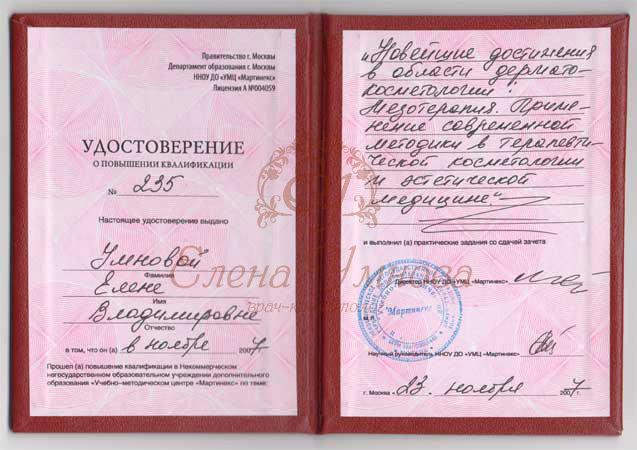 Правительство г. Москвы
Департамент образования г. Москвы
ННОУ ДО «УМЦ «Мартинекс»
Лицензия А №004059
УДОСТОВЕРЕНИЕ
О ПОВЫШЕНИИ КВАЛИФИКАЦИИ
№ 235
Настоящее удостоверение выдано
Умновой
Фамилия
Елене
Имя
Владимировне
Отчество
в том, что он (а) в ноябре 2007
Прошел (а) повышение квалификации в Некоммерческом
негосударственном образовательном учреждении дополнительного
образования «Учебно–методическом центре «Мартинекс» по теме:
„Новейшие достижения
в области дермато-
косметологии:
Мезотерапия. Приме-
нение современной
методики в терапевти-
ческой косметологии
и эстетической
медицине"
и выполнил (а) практические задания со сдачей зачета
Директор ННОУ ДО «УМЦ «Мартинекс»
"Мартинекс"
М.П.
Научный руководитель ННОУ ДО «УМЦ «Мартинекс»
г. Москва « 23 » ноября 2007
Елена Умнова